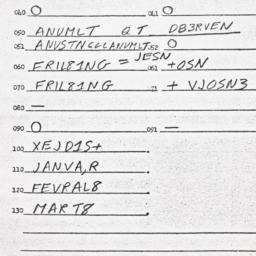 040 O 041 O
050 ANUMLT QT DB3RVEN
051 ANUSTNCCLANUMLT 052 O
060 FRIL81NG = JESN 061 +OSN
070 FRIL81NG 71 + VJOSN3
080 —
090 O 091 —
100 XEJD1S+
110 JANVA,R
120 FEVRAL8
130 MART8